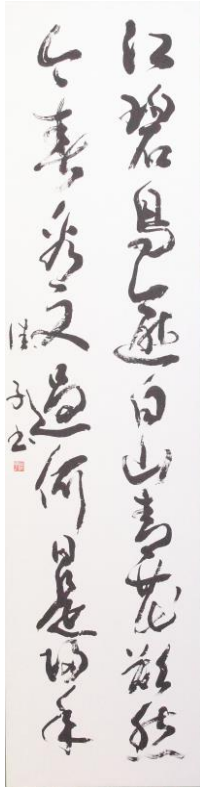 江碧鳥逾白山青花欲然
今春看又過何日是帰年
子書